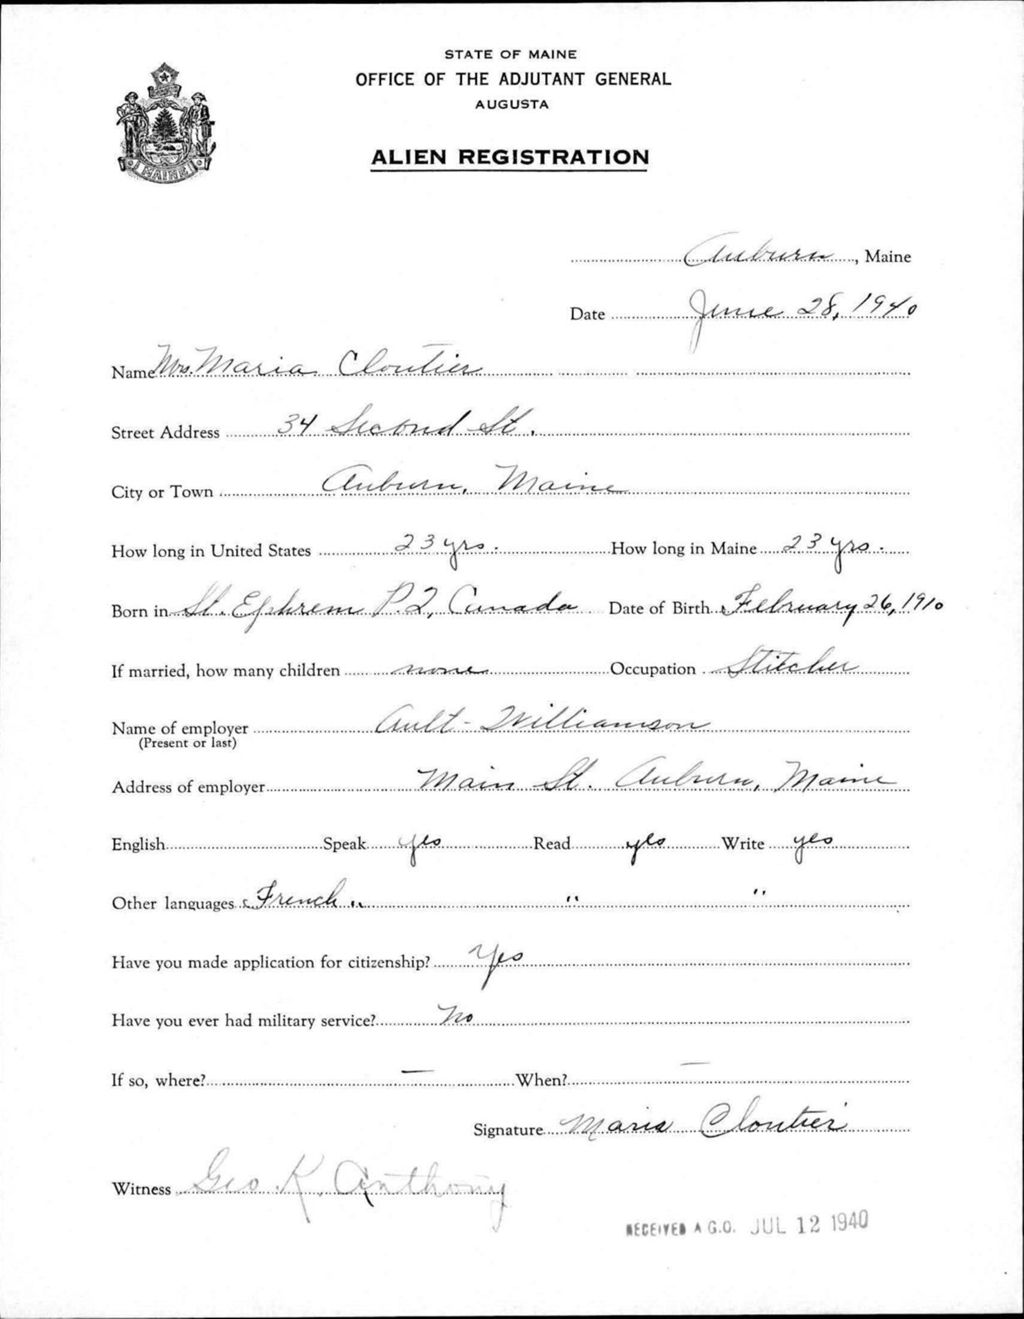 STATE OF MAINE
OFFICE OF THE ADJUTANT GENERAL
AUGUSTA
ALIEN REGISTRATION
MAINE
Auburn, Maine
Date June 28, 1940
Name Mrs. Maria Cloutier
Street Address 34 Second St.
City or Town Auburn, Maine
How long in United States 23 yrs. How long in Maine 23 yrs.
Born in St. Ephrem P.Q. Canada Date of Birth February 26, 1910
If married, how many children none Occupation Stitcher
Name of employer Ault-Williamson
(Present or last)
Address of employer Main St. Auburn, Maine
English Speak yes Read yes Write yes
Other languages French " " "
Have you made application for citizenship? Yes
Have you ever had military service? No
If so, where? — When? —
Signature Maria Cloutier
Witness Geo K. Anthony
RECEIVED A.G.O. JUL 12 1940